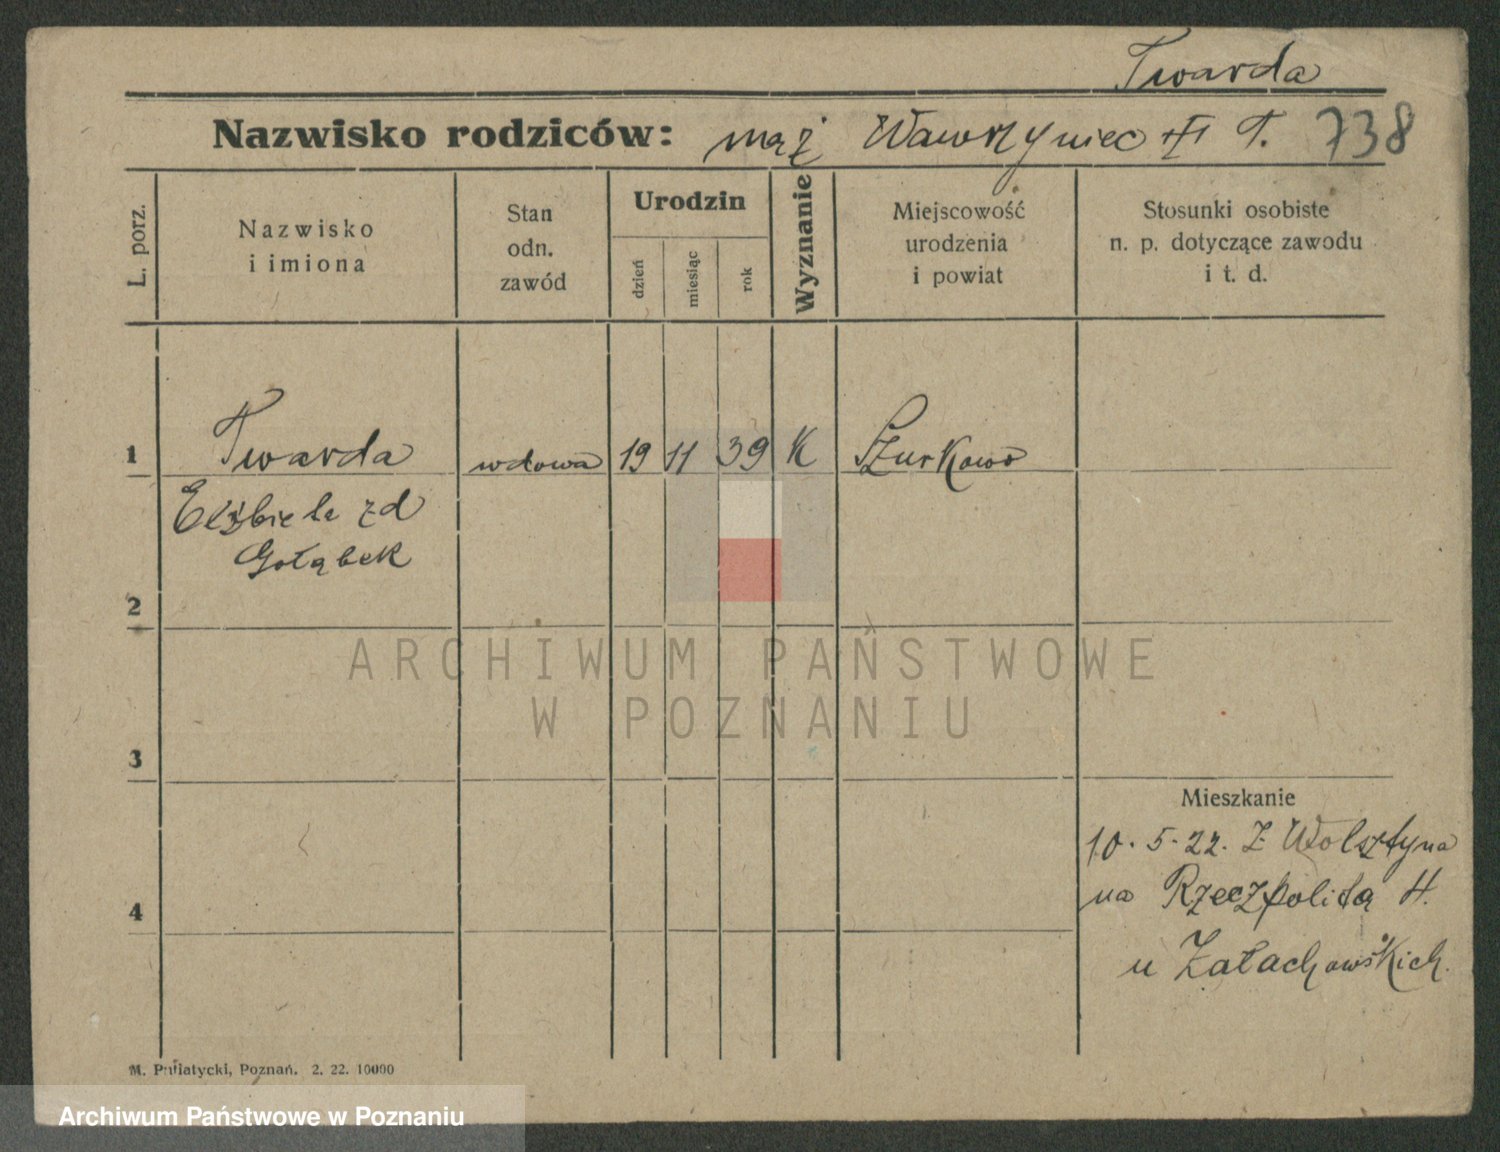 Twarda
Nazwisko rodziców: mąż Wawrzyniec T. 738
L. porz.
Nazwisko
i imiona
Stan
odn.
zawód
Urodzin
dzień
miesiąc
rok
Wyznanie
Miejscowość
urodzenia
i powiat
Stosunki osobiste
n. p. dotyczące zawodu
i t. d.
1 Twarda wdowa 19 11 39 K Szurkowo
Elżbieta zd
Gołąbek
2
ARCHIWUM PAŃSTWOWE
W POZNANIU
3
Mieszkanie
10. 5. 22. Z Wolsztyna
na Rzeczpolitą 4.
4
u Załachowskich.
M. Putiatycki, Poznań. 2. 22. 10000
Archiwum Państwowe w Poznaniu